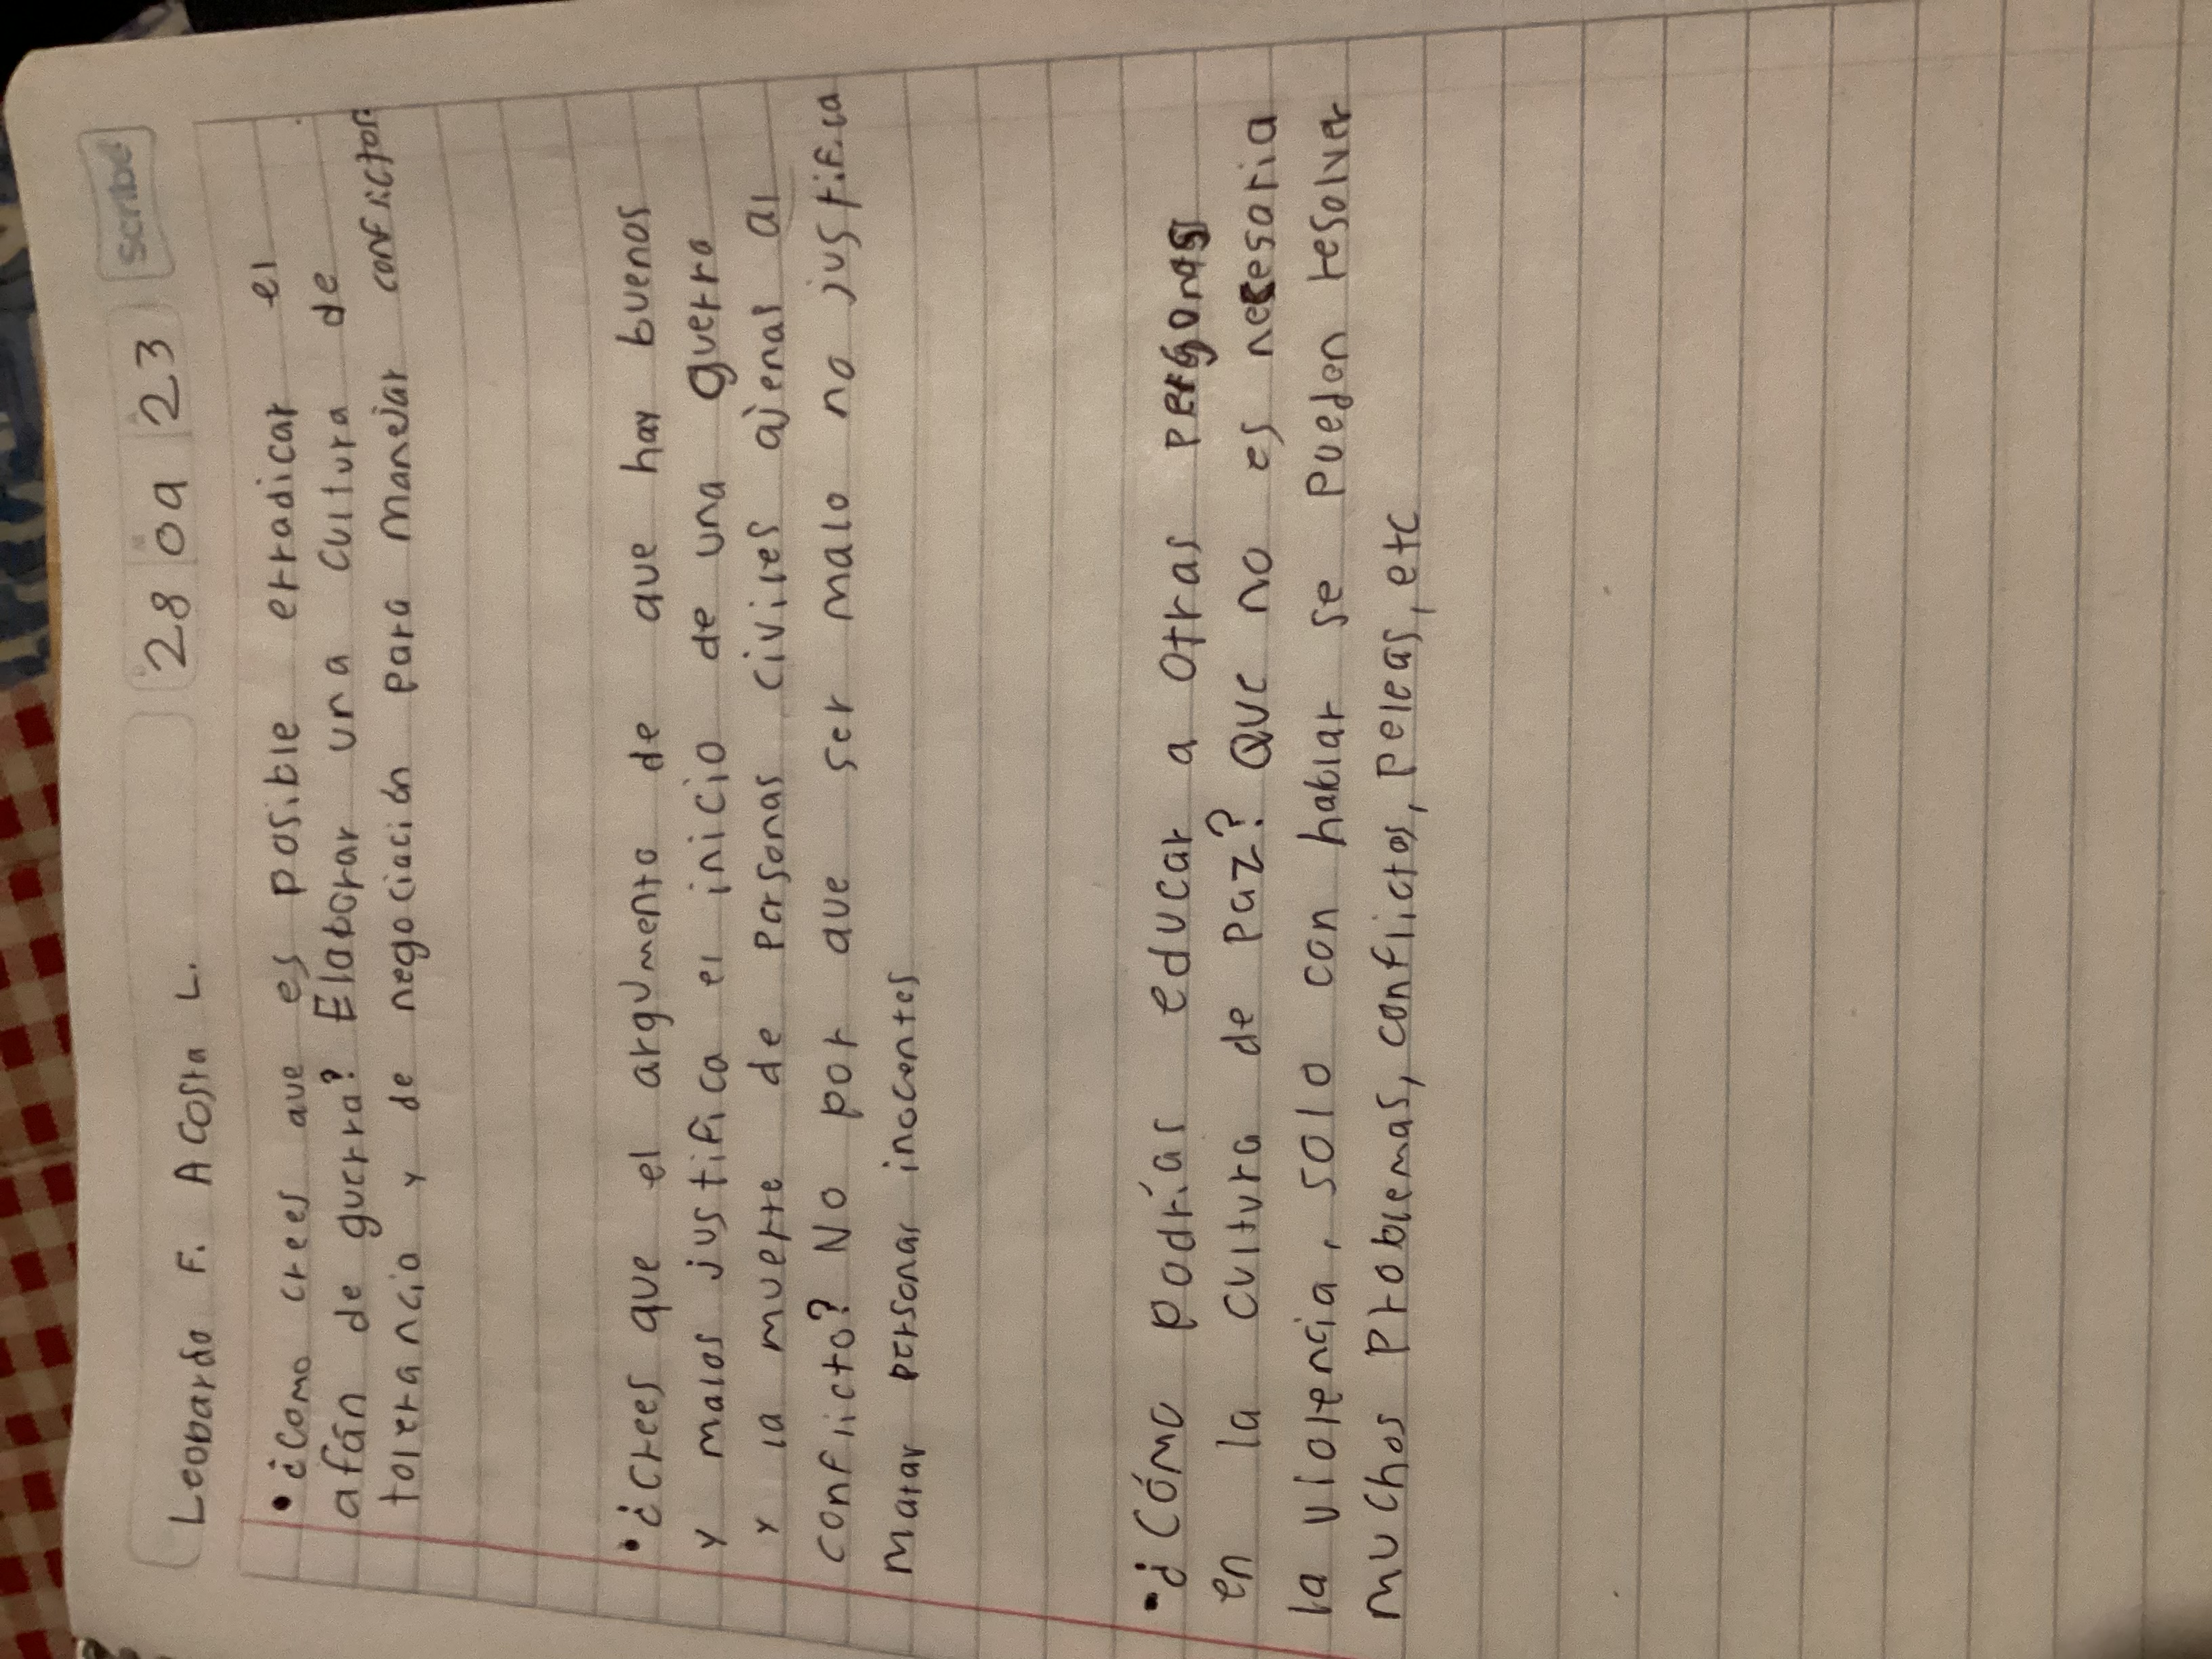 Leobardo F. Acosta L. 28 09 23 scribe
• ¿Como crees que es posible erradicar el
afán de guerra? Elaborar una cultura de
tolerancia y de negociación para manejar conflictos.
• ¿Crees que el argumento de que hay buenos
y malos justifica el inicio de una guerra
y la muerte de personas civiles ajenas al
conflicto? No por que ser malo no justifica
matar personas inocentes
• ¿Cómo podrías educar a otras personas
en la cultura de paz? Que no es necesaria
la violencia, solo con hablar se pueden resolver
muchos problemas, conflictos, peleas, etc